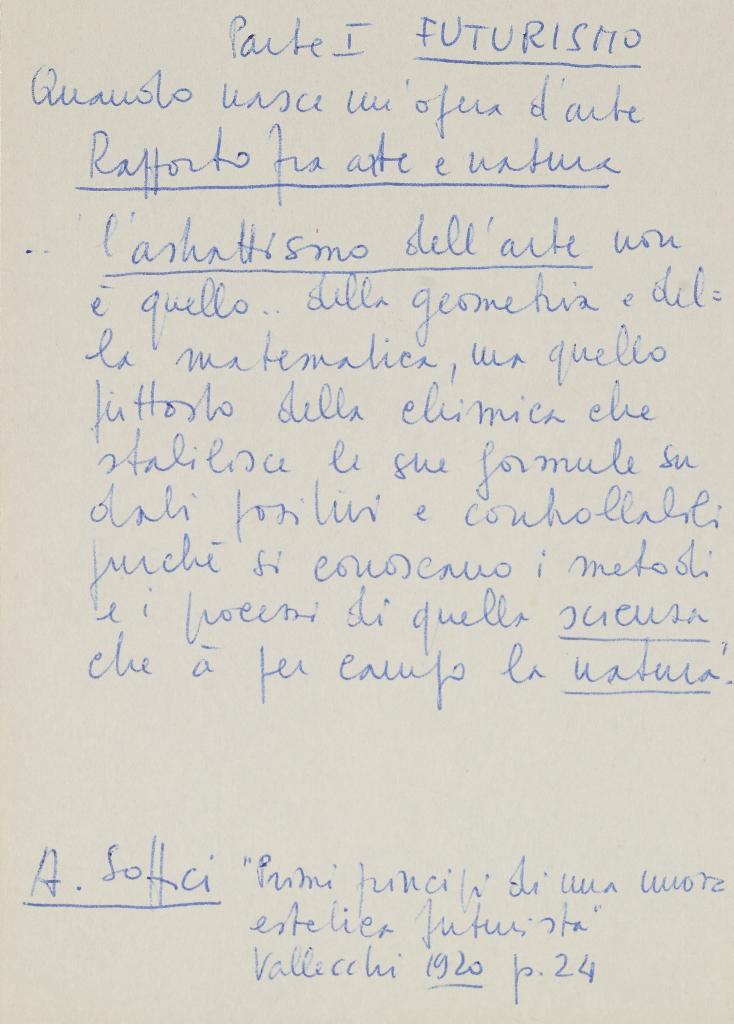 Parte I FUTURISMO
Quando nasce un'opera d'arte
Rapporto fra arte e natura
.. l'astrattismo dell'arte non
è quello.. della geometria e del=
la matematica, ma quello
piuttosto della chimica che
stabilisce le sue formule su
dati positivi e controllabili
purchè si conoscano i metodi
e i processi di quella scienza
che à per campo la natura".
A. Soffici "Primi principi di una nuova
estetica futurista"
Vallecchi 1920 p. 24